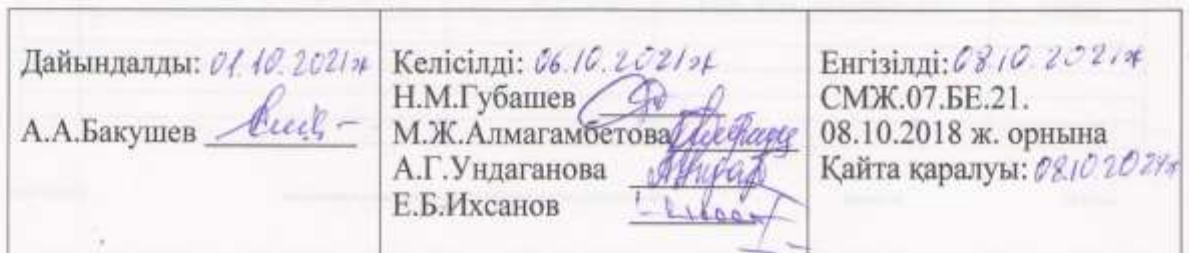 Дайындалды: 01.10.2021ж
А.А.Бакушев
Келісілді: 06.10.2021ж
Н.М.Губашев
М.Ж.Алмагамбетова
А.Г.Ундаганова
Е.Б.Ихсанов
Енгізілді: 08.10.2021ж
СМЖ.07.БЕ.21.
08.10.2018 ж. орнына
Қайта қаралуы: 08.10.2024ж